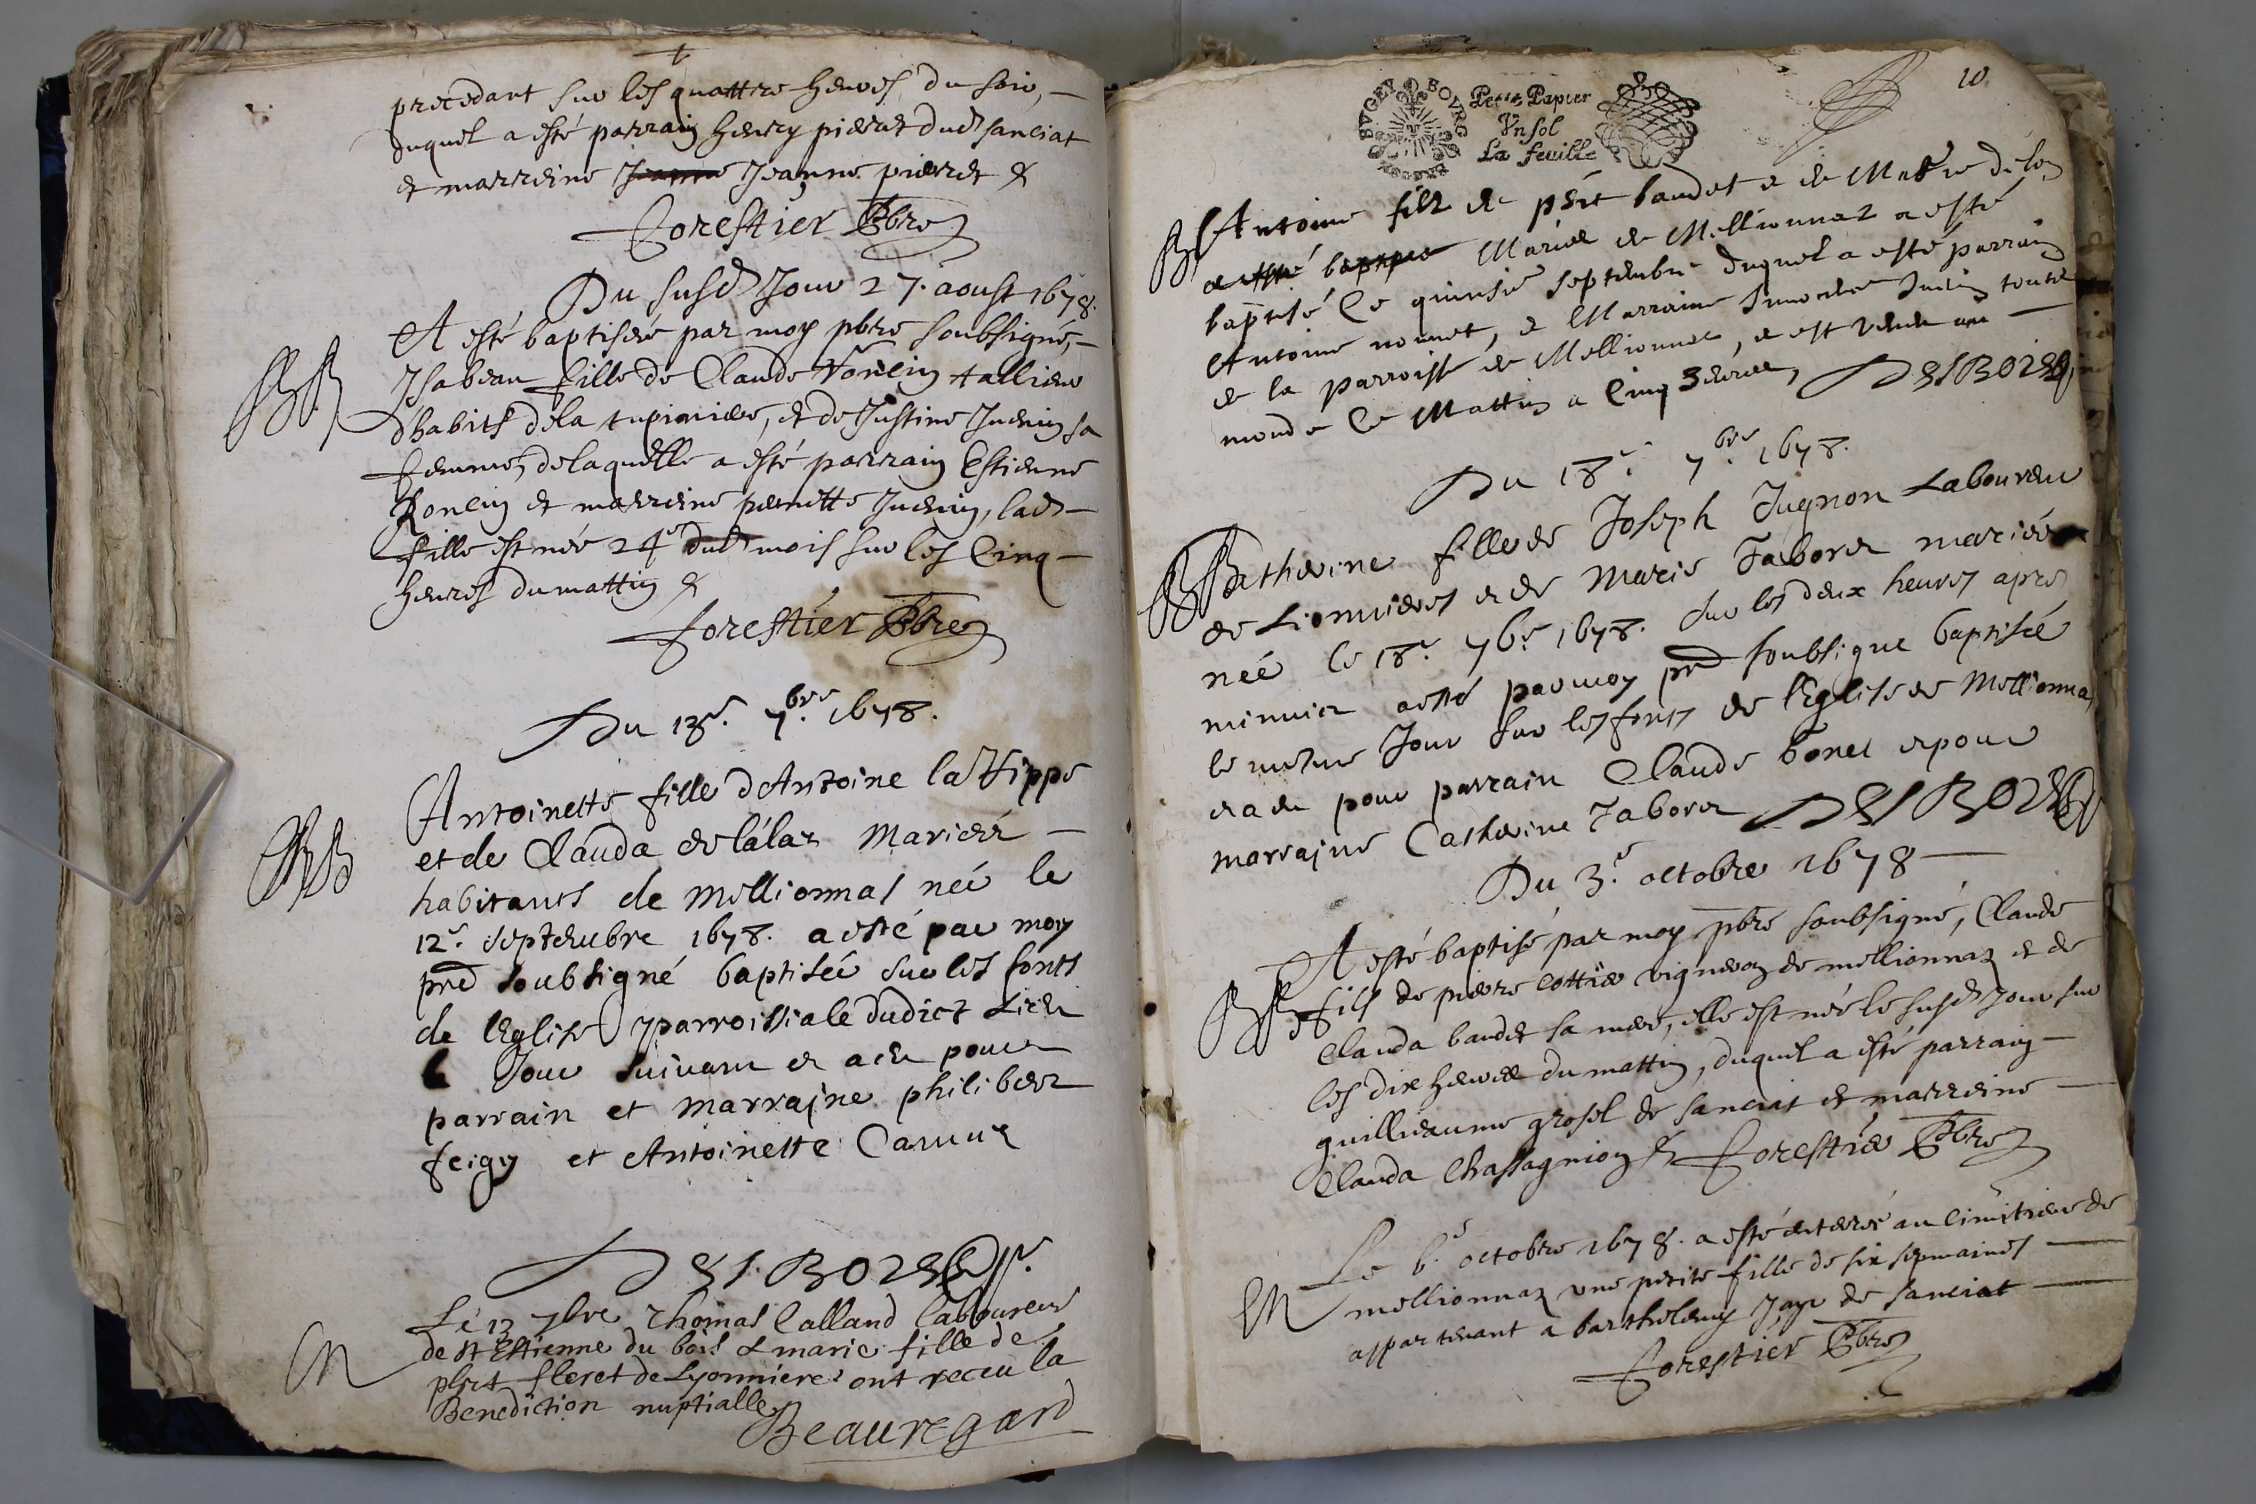 precedant sur les quattre heures du soir,
duquel a esté parrain henry pierret dud sanciat
et marreine Jeanne Jeanne pierret &
Forestier Pbre
Du susd Jour 27. aoust 1678.
A esté baptisée par moy pbre soubsigné,
Ysabeau fille de Claude Poncin tallieur
dhabits dela tupiniere, et de Justine Juenin sa
femme, delaquelle a esté parrain Estienne
Poncin et marreine pernette Juenin, lad
fille est née 24e dud mois sur les Cinq
heures du mattin &
Forestier Pbre
Du 13e. 7bre. 1678.
Antoinette fille d'Antoine la
et de Clauda Mariéz
habitants de Mellionnas née le
12e. septembre 1678. a esté par moy
prd soubsigné baptisée sur les fonts
de l'Eglise parroissiale dudict Lieu
le Jour suivant et a eu pour
parrain et marrajne philibert
feigy et Antoinette
DESBORDES
Le 13 7bre Thomas Calland laboureur
de St Estienne du bois & marie fille de
pbrt fleret de Lyonniere ont receu la
Benediction nuptialle
Beauregard
10.
BVGEY BOVRG
Petit Papier
Vn sol
La feuille
Antoine filz de pbrt baudet et de
a esté baptisé Mariez de Mellionnaz a esté
baptisé le quinsie septembre duquel a esté parrain
Antoine nonnet, et Marraine Juenin toute
de la parroisse de Mellionnaz, et est venu au
monde le Mattin a Cinq heures, DESBORDES
Du 18e. 7bre. 1678.
Catherine fille de Joseph Jugnon Laboureur
de Lionnieres et de Marie Taboret mariée
née le 18e. 7bre 1678. sur les deux heures apres
minuict a esté par moy prd soubsigne baptisée
le mesme Jour sur les fonts de l'Eglise de Mellionna
et a eu pour parrain Claude bonet et pour
marrajne Catherine Taboret DESBORDES
Du 3e. octobre 1678
A esté baptisé par moy pbre soubsigné, Claude
fils de pierre cottier vigneron de mellionnaz et de
Clauda baudet sa mere, elle est née le susd Jour sur
les dix heures du mattin, duquel a esté parrain
guillieaume grosel de sanciat et marreine
Clauda Chassagnion & Forestier Pbre
Le 6e. octobre 1678. a esté enterré au cimitiere de
mellionnaz une petite fille de six sepmaines
appartenant a barthelemy Jayr de sanciat
Forestier Pbre